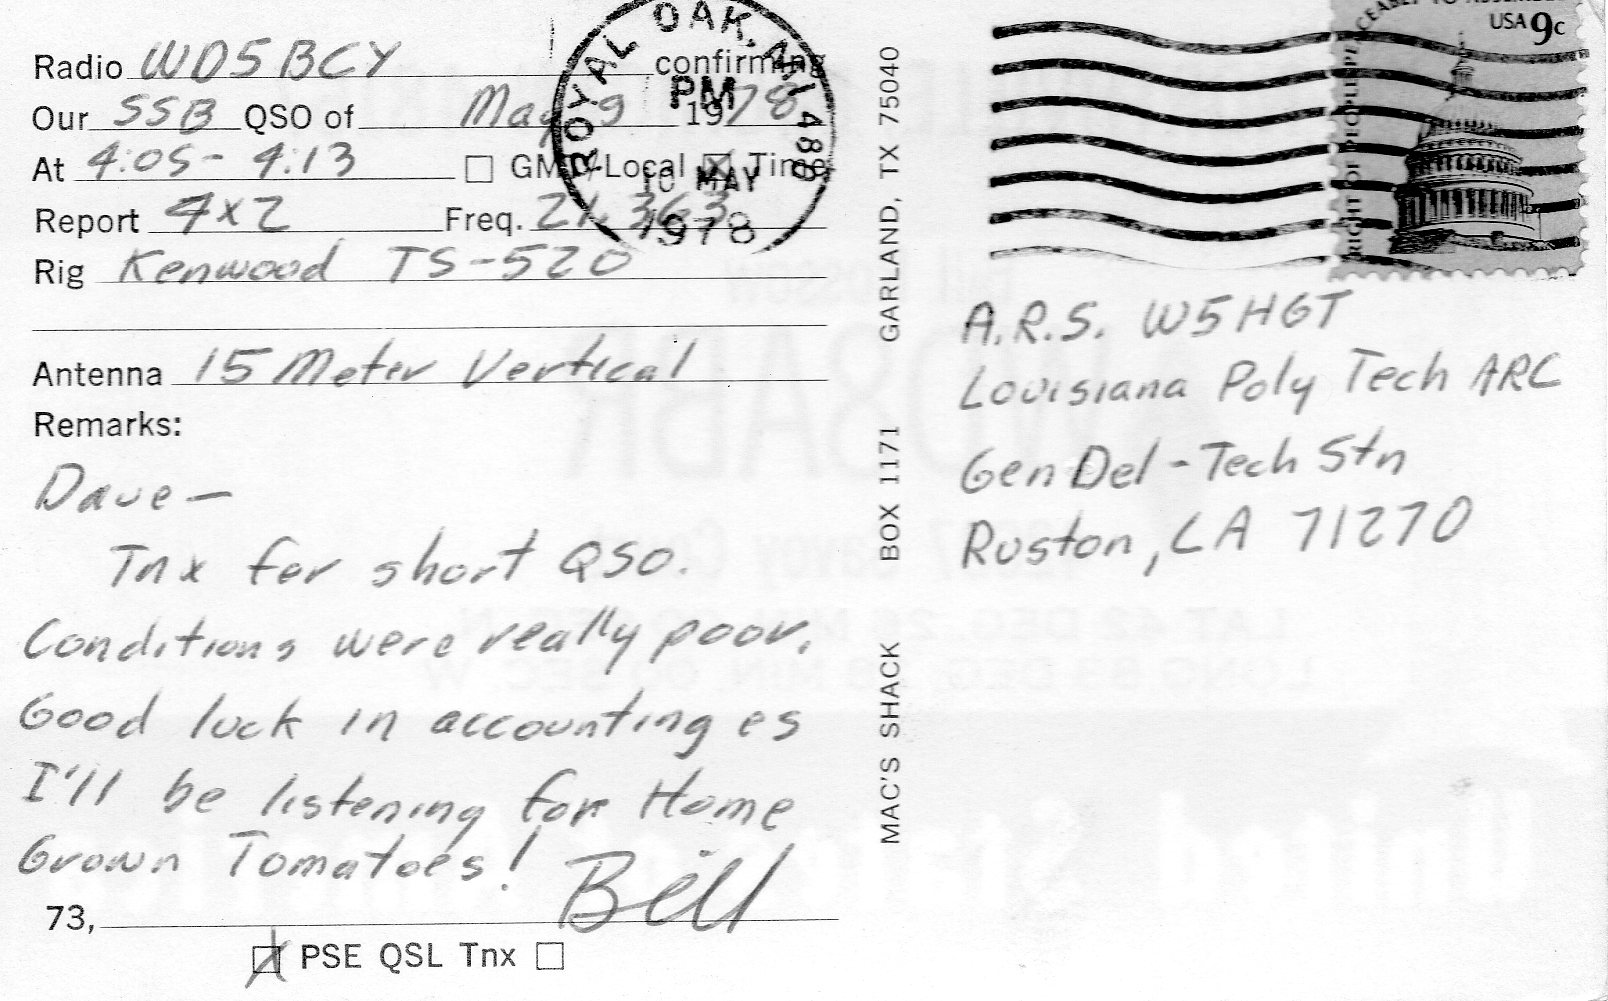 Radio WD5BCY confirming
Our SSB QSO of May 9 1978
At 4:05 - 4:13 GMT/Local Time
Report 4x2 Freq. 21.363
Rig Kenwood TS-520
Antenna 15 Meter Vertical
Remarks:
Dave —
Tnx fer short QSO.
Conditions were really poor.
Good luck in accounting es
I'll be listening for Home
Grown Tomatoes!
73, Bill
PSE QSL Tnx
ROYAL OAK, MI 480
PM
10 MAY
1978
MAC'S SHACK BOX 1171 GARLAND, TX 75040
USA 9c
RIGHT OF PEOPLE PEACEABLY TO ASSEMBLE
A.R.S. W5HGT
Louisiana Poly Tech ARC
Gen Del - Tech Stn
Ruston, LA 71270